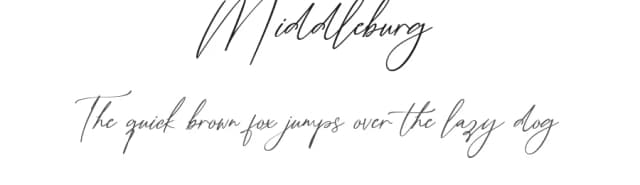 Middleburg
The quick brown fox jumps over the lazy dog